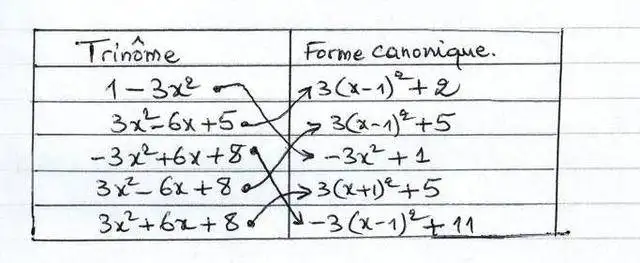 Trinôme Forme canonique.
1 - 3x² 3(x-1)² + 2
3x² - 6x + 5 3(x-1)² + 5
-3x² + 6x + 8 -3x² + 1
3x² - 6x + 8 3(x+1)² + 5
3x² + 6x + 8 -3(x-1)² + 11